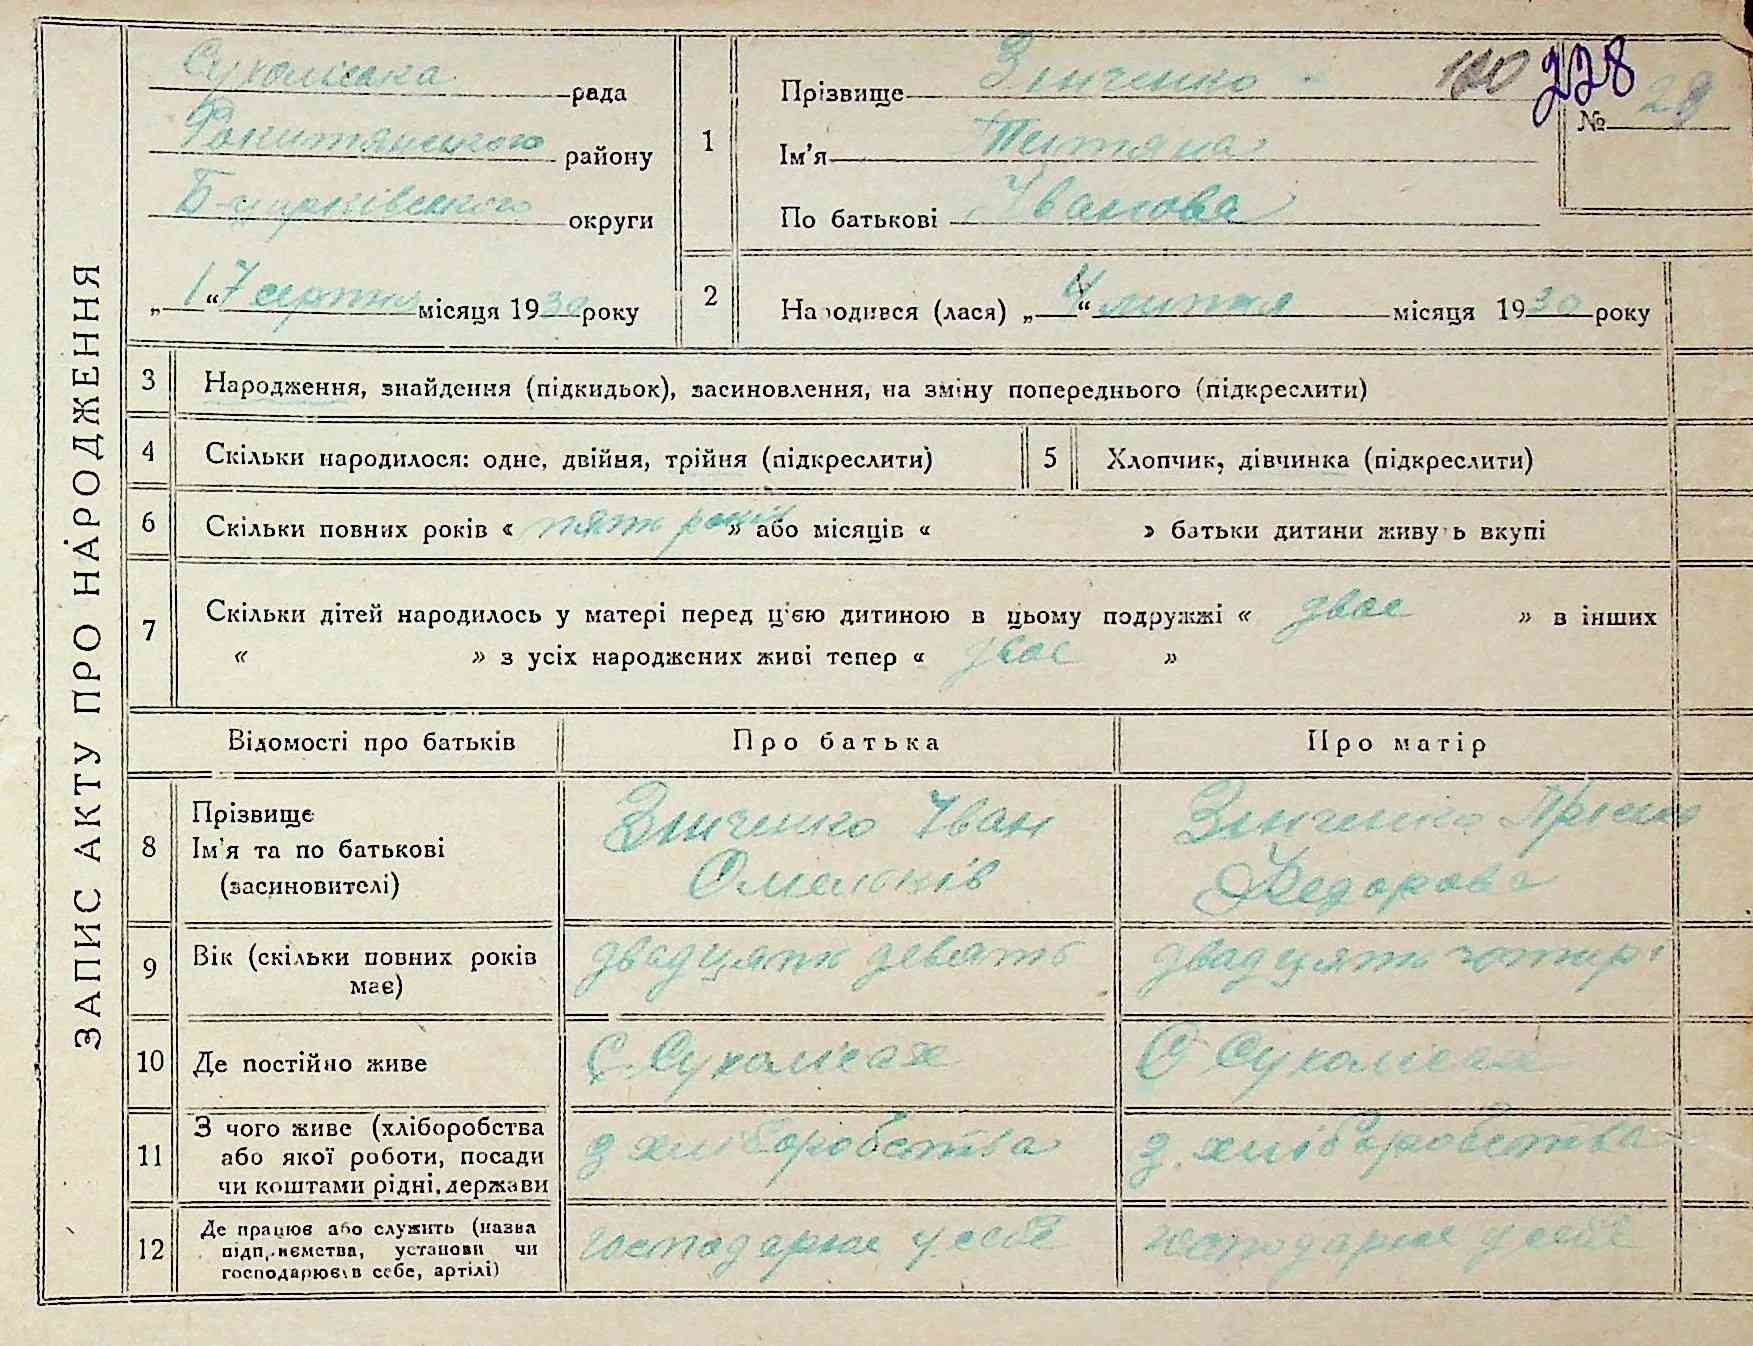 ЗАПИС АКТУ ПРО НАРОДЖЕННЯ
Сухоліська рада
Рокитянського району
Б-церківського округи
„17“ серпня місяця 1930 року
180 228
№ 29
1 Прізвище Зінченко
Ім'я Тетяна
По батькові Іванова
2 Народився (лася) „4“ липня місяця 1930 року
3 Народження, знайдення (підкидьок), засиновлення, на зміну попереднього (підкреслити)
4 Скільки народилося: одне, двійня, трійня (підкреслити) 5 Хлопчик, дівчинка (підкреслити)
6 Скільки повних років « пять років » або місяців « » батьки дитини живуть вкупі
7 Скільки дітей народилось у матері перед ц'єю дитиною в цьому подружжі « двоє » в інших
« » з усіх народжених живі тепер « двоє »
Відомості про батьків Про батька Про матір
8 Прізвище Ім'я та по батькові (засиновителі)
Зінченко Іван Омельків
Зінченко Пріська Федорова
9 Вік (скільки повних років має)
двадцять девять
двадцять чотирі
10 Де постійно живе
С. Сухолісах
С Сухолісах
11 З чого живе (хліборобства або якої роботи, посади чи коштами рідні, держави
з хліборобства
з хліборобства
12 Де працює або служить (назва підприємства, установи чи господарює в себе, артілі)
господарює у себе
господарює у себе